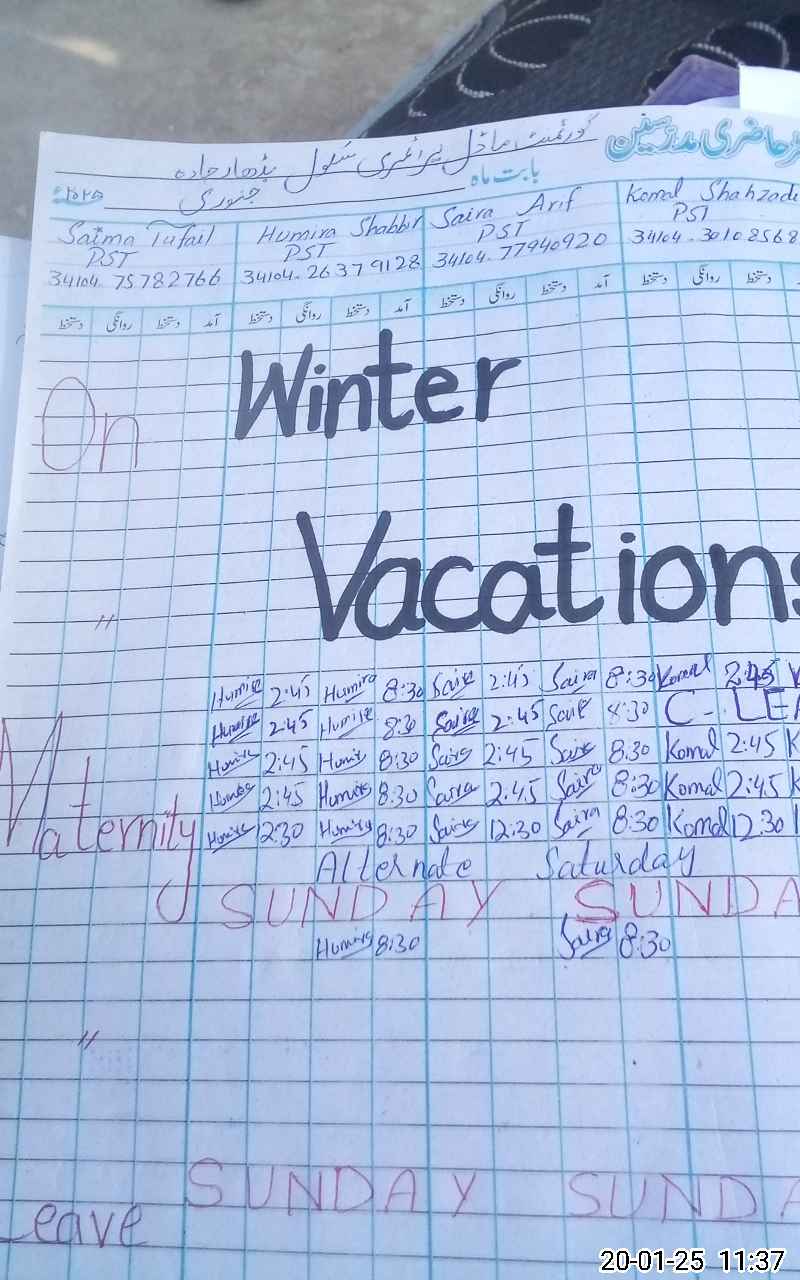 حاضری مدرسین
گورنمنٹ ماڈل پرائمری سکول بڈھار جادہ
بابت ماہ جنوری ۲۰۲۵ء
Saima Tufail Humira Shabbir Saira Arif Komal Shahzadi
PST PST PST PST
34104-75782766 34104-26379128 34104-77940920 34104-30108568
دستخط روانگی دستخط آمد دستخط روانگی دستخط آمد دستخط روانگی دستخط آمد دستخط روانگی دستخط
On Winter
Vacations
"
Humira 2:45 Humira 8:30 Saira 2:45 Saira 8:30 Komal 2:45
Humira 2:45 Humira 8:30 Saira 2:45 Saira 8:30 C-LEA
Humira 2:45 Humira 8:30 Saira 2:45 Saira 8:30 Komal 2:45 K
Humira 2:45 Humira 8:30 Saira 2:45 Saira 8:30 Komal 2:45 K
Maternity Humira 12:30 Humira 8:30 Saira 12:30 Saira 8:30 Komal 12:30
Alternate Saturday
SUNDAY SUNDA
Humira 8:30 Saira 8:30
"
SUNDAY SUNDA
Leave
20-01-25 11:37